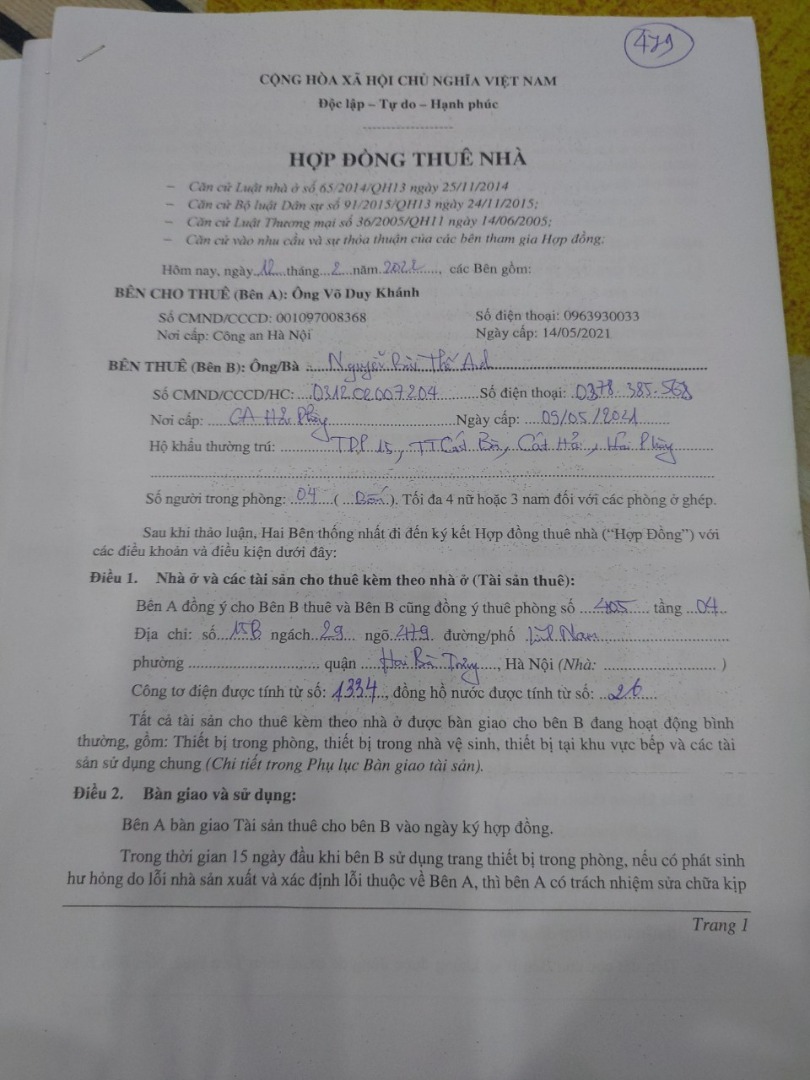 479
CỘNG HÒA XÃ HỘI CHỦ NGHĨA VIỆT NAM
Độc lập – Tự do – Hạnh phúc
HỢP ĐỒNG THUÊ NHÀ
– Căn cứ Luật nhà ở số 65/2014/QH13 ngày 25/11/2014
– Căn cứ Bộ luật Dân sự số 91/2015/QH13 ngày 24/11/2015;
– Căn cứ Luật Thương mại số 36/2005/QH11 ngày 14/06/2005;
– Căn cứ vào nhu cầu và sự thỏa thuận của các bên tham gia Hợp đồng;
Hôm nay, ngày 12 tháng 2 năm 2022, các Bên gồm:
BÊN CHO THUÊ (Bên A): Ông Võ Duy Khánh
Số CMND/CCCD: 001097008368 Số điện thoại: 0963930033
Nơi cấp: Công an Hà Nội Ngày cấp: 14/05/2021
BÊN THUÊ (Bên B): Ông/Bà Nguyễn Bùi Thế Anh
Số CMND/CCCD/HC: 031202007204 Số điện thoại: 0378.385.568
Nơi cấp: CA Hải Phòng Ngày cấp: 09/05/2021
Hộ khẩu thường trú: TDP 15, TT Cát Bà, Cát Hải, Hải Phòng
Số người trong phòng: 04 ( Bốn ). Tối đa 4 nữ hoặc 3 nam đối với các phòng ở ghép.
Sau khi thảo luận, Hai Bên thống nhất đi đến ký kết Hợp đồng thuê nhà (“Hợp Đồng”) với
các điều khoản và điều kiện dưới đây:
Điều 1. Nhà ở và các tài sản cho thuê kèm theo nhà ở (Tài sản thuê):
Bên A đồng ý cho Bên B thuê và Bên B cũng đồng ý thuê phòng số 405 tầng 04
Địa chỉ: số 15B ngách 29 ngõ 479 đường/phố Lĩnh Nam
phường quận Hai Bà Trưng, Hà Nội (Nhà: )
Công tơ điện được tính từ số: 1334, đồng hồ nước được tính từ số: 26
Tất cả tài sản cho thuê kèm theo nhà ở được bàn giao cho bên B đang hoạt động bình
thường, gồm: Thiết bị trong phòng, thiết bị trong nhà vệ sinh, thiết bị tại khu vực bếp và các tài
sản sử dụng chung (Chi tiết trong Phụ lục Bàn giao tài sản).
Điều 2. Bàn giao và sử dụng:
Bên A bàn giao Tài sản thuê cho bên B vào ngày ký hợp đồng.
Trong thời gian 15 ngày đầu khi bên B sử dụng trang thiết bị trong phòng, nếu có phát sinh
hư hỏng do lỗi nhà sản xuất và xác định lỗi thuộc về Bên A, thì bên A có trách nhiệm sửa chữa kịp
Trang 1